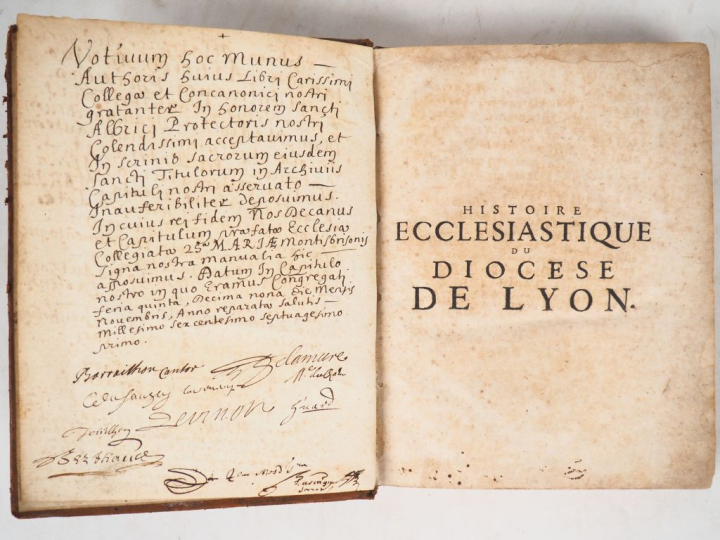 Votiuum hoc Munus
Authoris huius Libri Carissimi
Collegæ et Concanonici nostri
gratanter In honorem Sancti
Albrici Protectoris nostri
Colendissimi acceptauimus, et
In scrinio sacrorum eiusdem
Sancti Titulorum in Archiuiis
Capituli nostri asseruato
Inauferibiliter deposuimus.
In cuius rei fidem Nos Decanus
et Capitulum præfatæ Ecclesiæ
Collegiatæ MARIÆ Montisbrisonis
signa nostra manualia hic
apposuimus. Datum In Capitulo
nostro in quo Eramus Congregati
feria quinta, Decima nona die Mensis
Nouembris, Anno reparatæ salutis
Millesimo sexcentesimo septuagesimo
primo.
Cantor Delamure
HISTOIRE
ECCLESIASTIQUE
DU
DIOCESE
DE LYON.